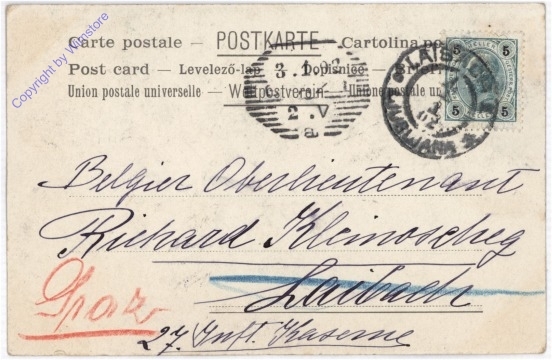 Carte postale – POSTKARTE – Cartolina
Post card – Levelező-lap – Dopisnice
Union postale universelle – Weltpostverein – Union postale
5 5
5 5
LAIBACH
LJUBLJANA
3.1.02
2.V
a
Belgier Oberlieutenant
Richard Kleinoscheg
Laibach
Graz
27. Inft. Kaserne
Copyright by Wcmstore